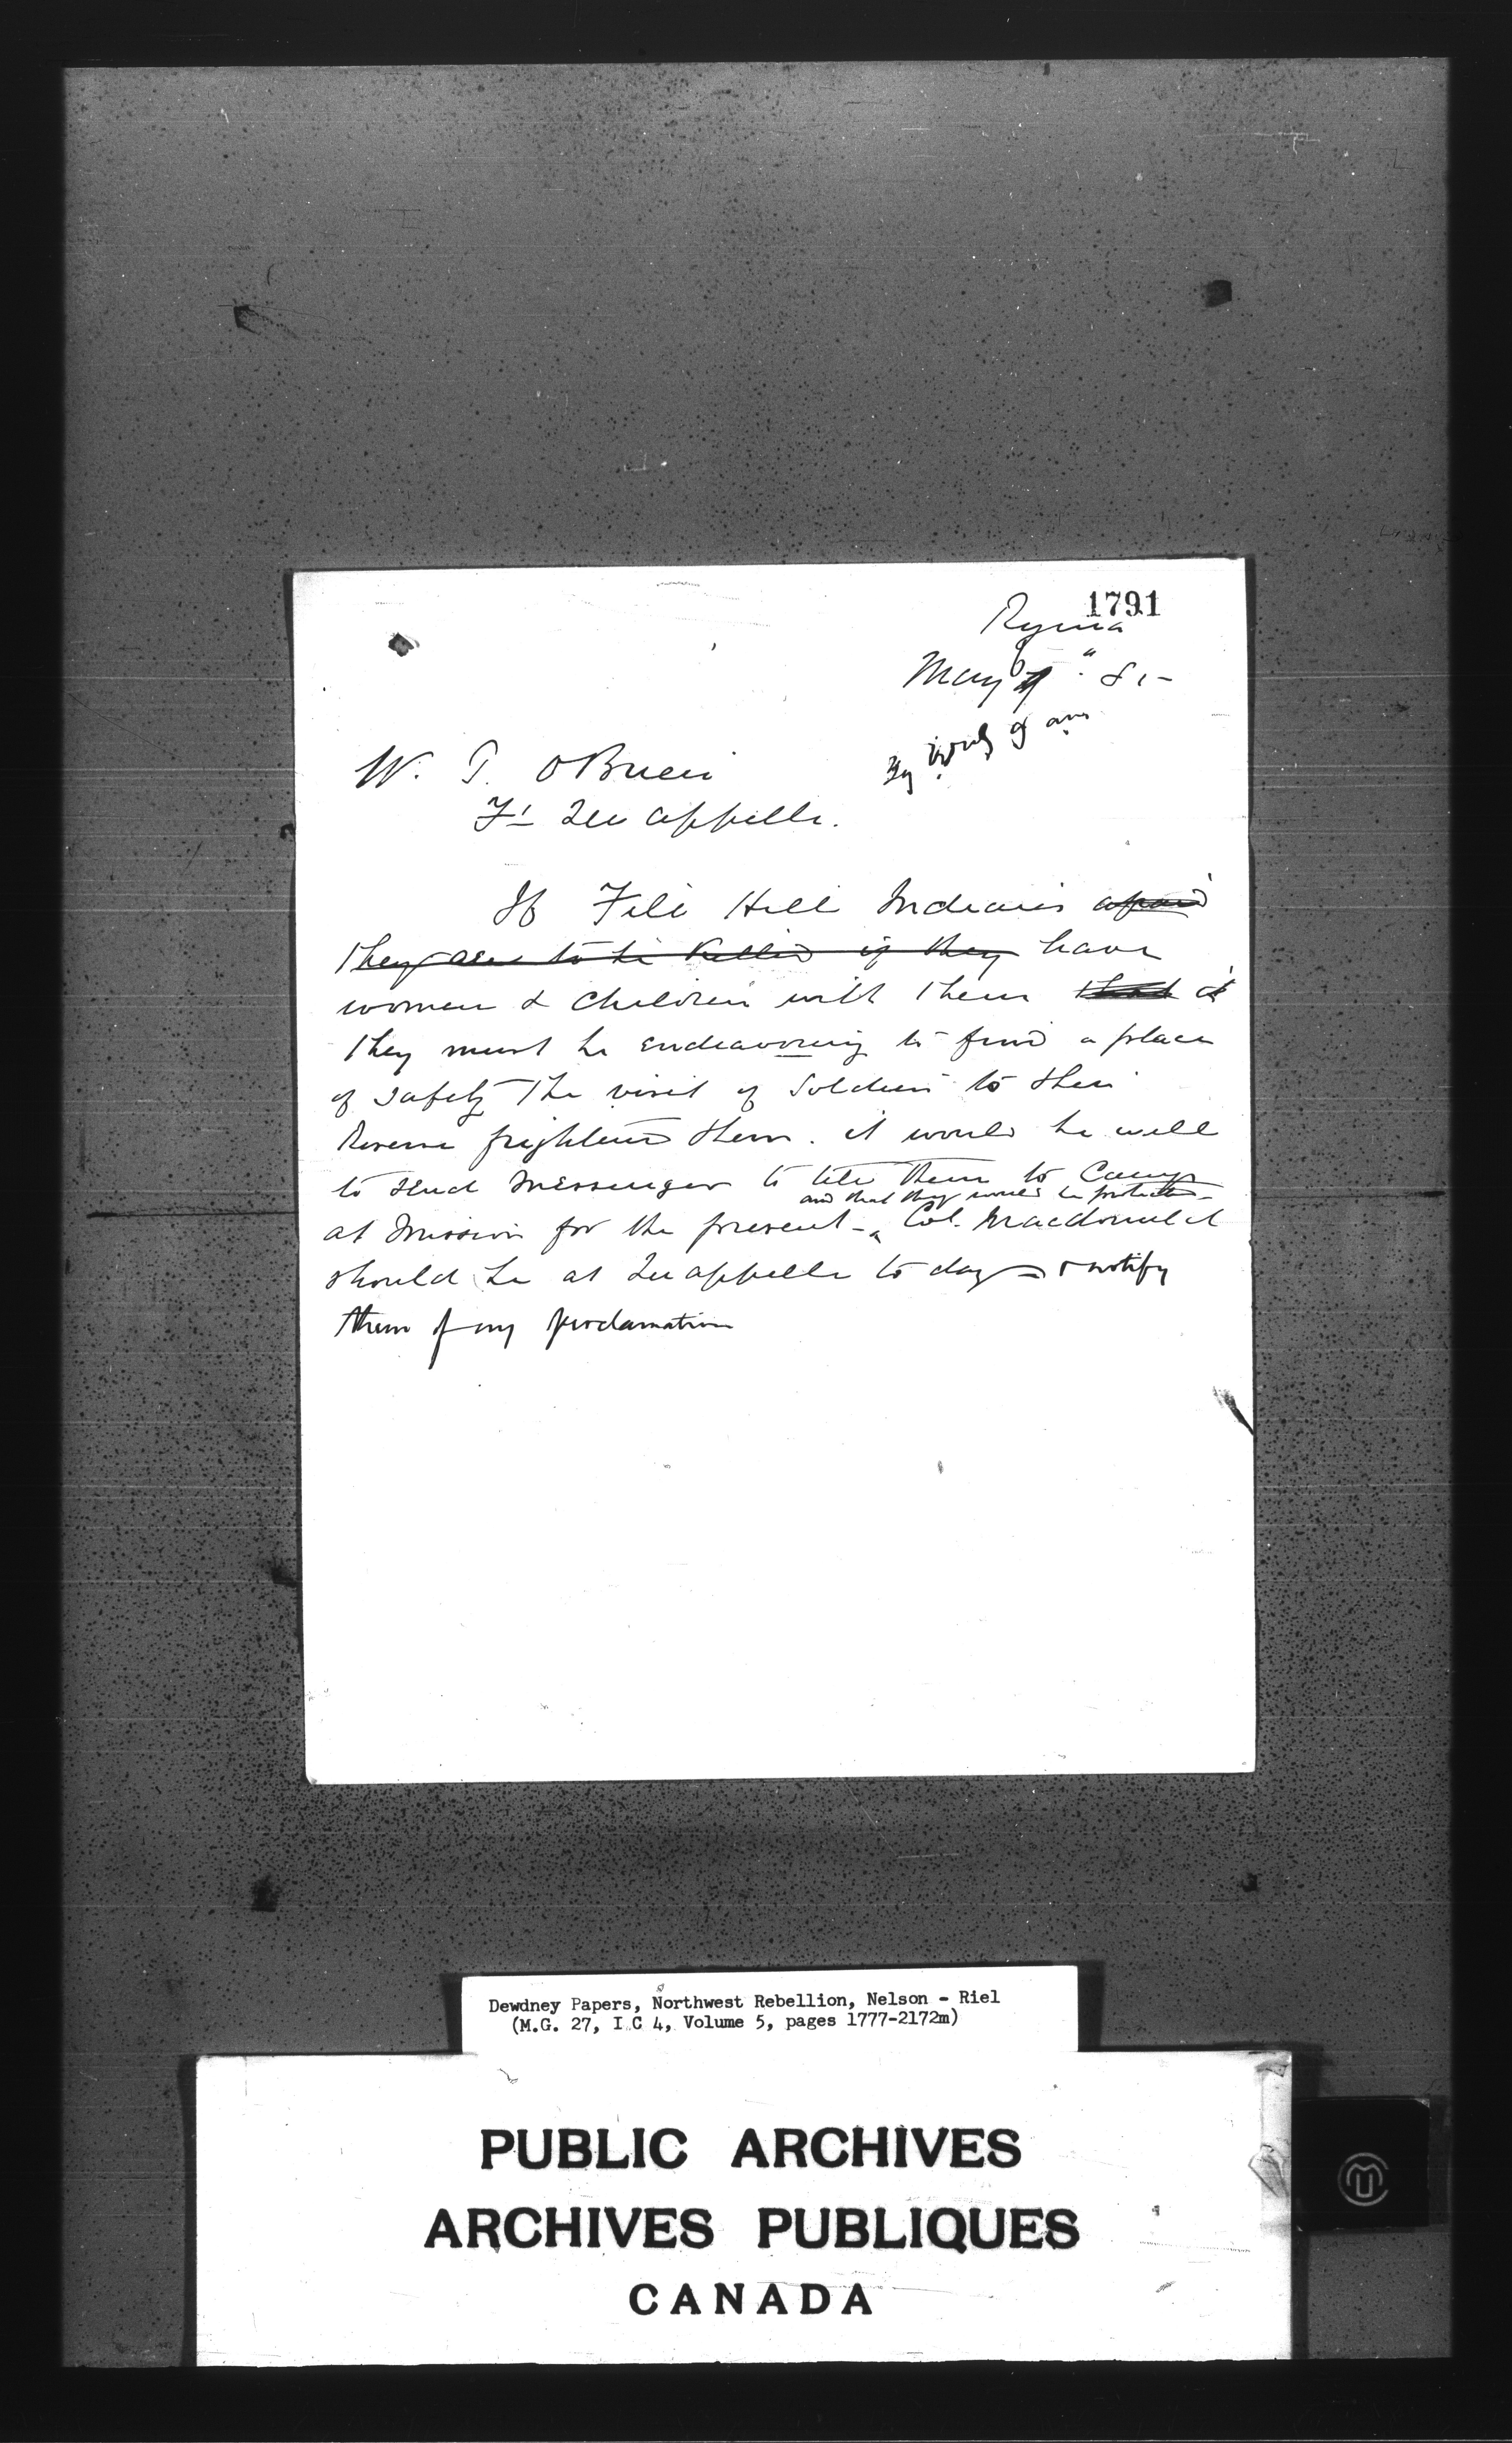 1791
Regina
May 6 " 85
W. T. OBrien
Ft Qu Appelle.
If File Hill Indians afraid
they are to be killed if they have
women & children with them
they must be endeavouring to find a place
of safety The visit of Soldiers to their
Reserve frightened them. it would be well
to send messenger to tell them to Camp
and that they would be protected
at Mission for the present - Col. Macdonald
should be at Qu appelle to day - & notify
them of my proclamation
Dewdney Papers, Northwest Rebellion, Nelson - Riel
(M.G. 27, I C 4, Volume 5, pages 1777-2172m)
PUBLIC ARCHIVES
ARCHIVES PUBLIQUES
CANADA